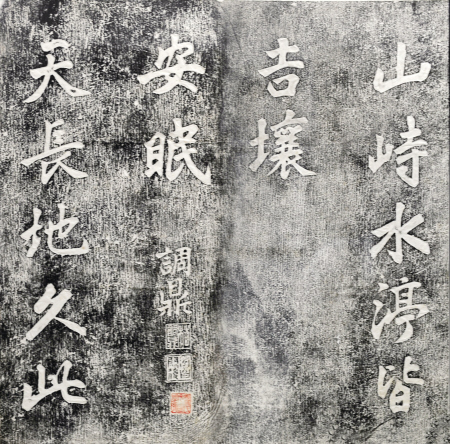 山峙水渟皆
吉壤
天長地久此
安眠
調鼎